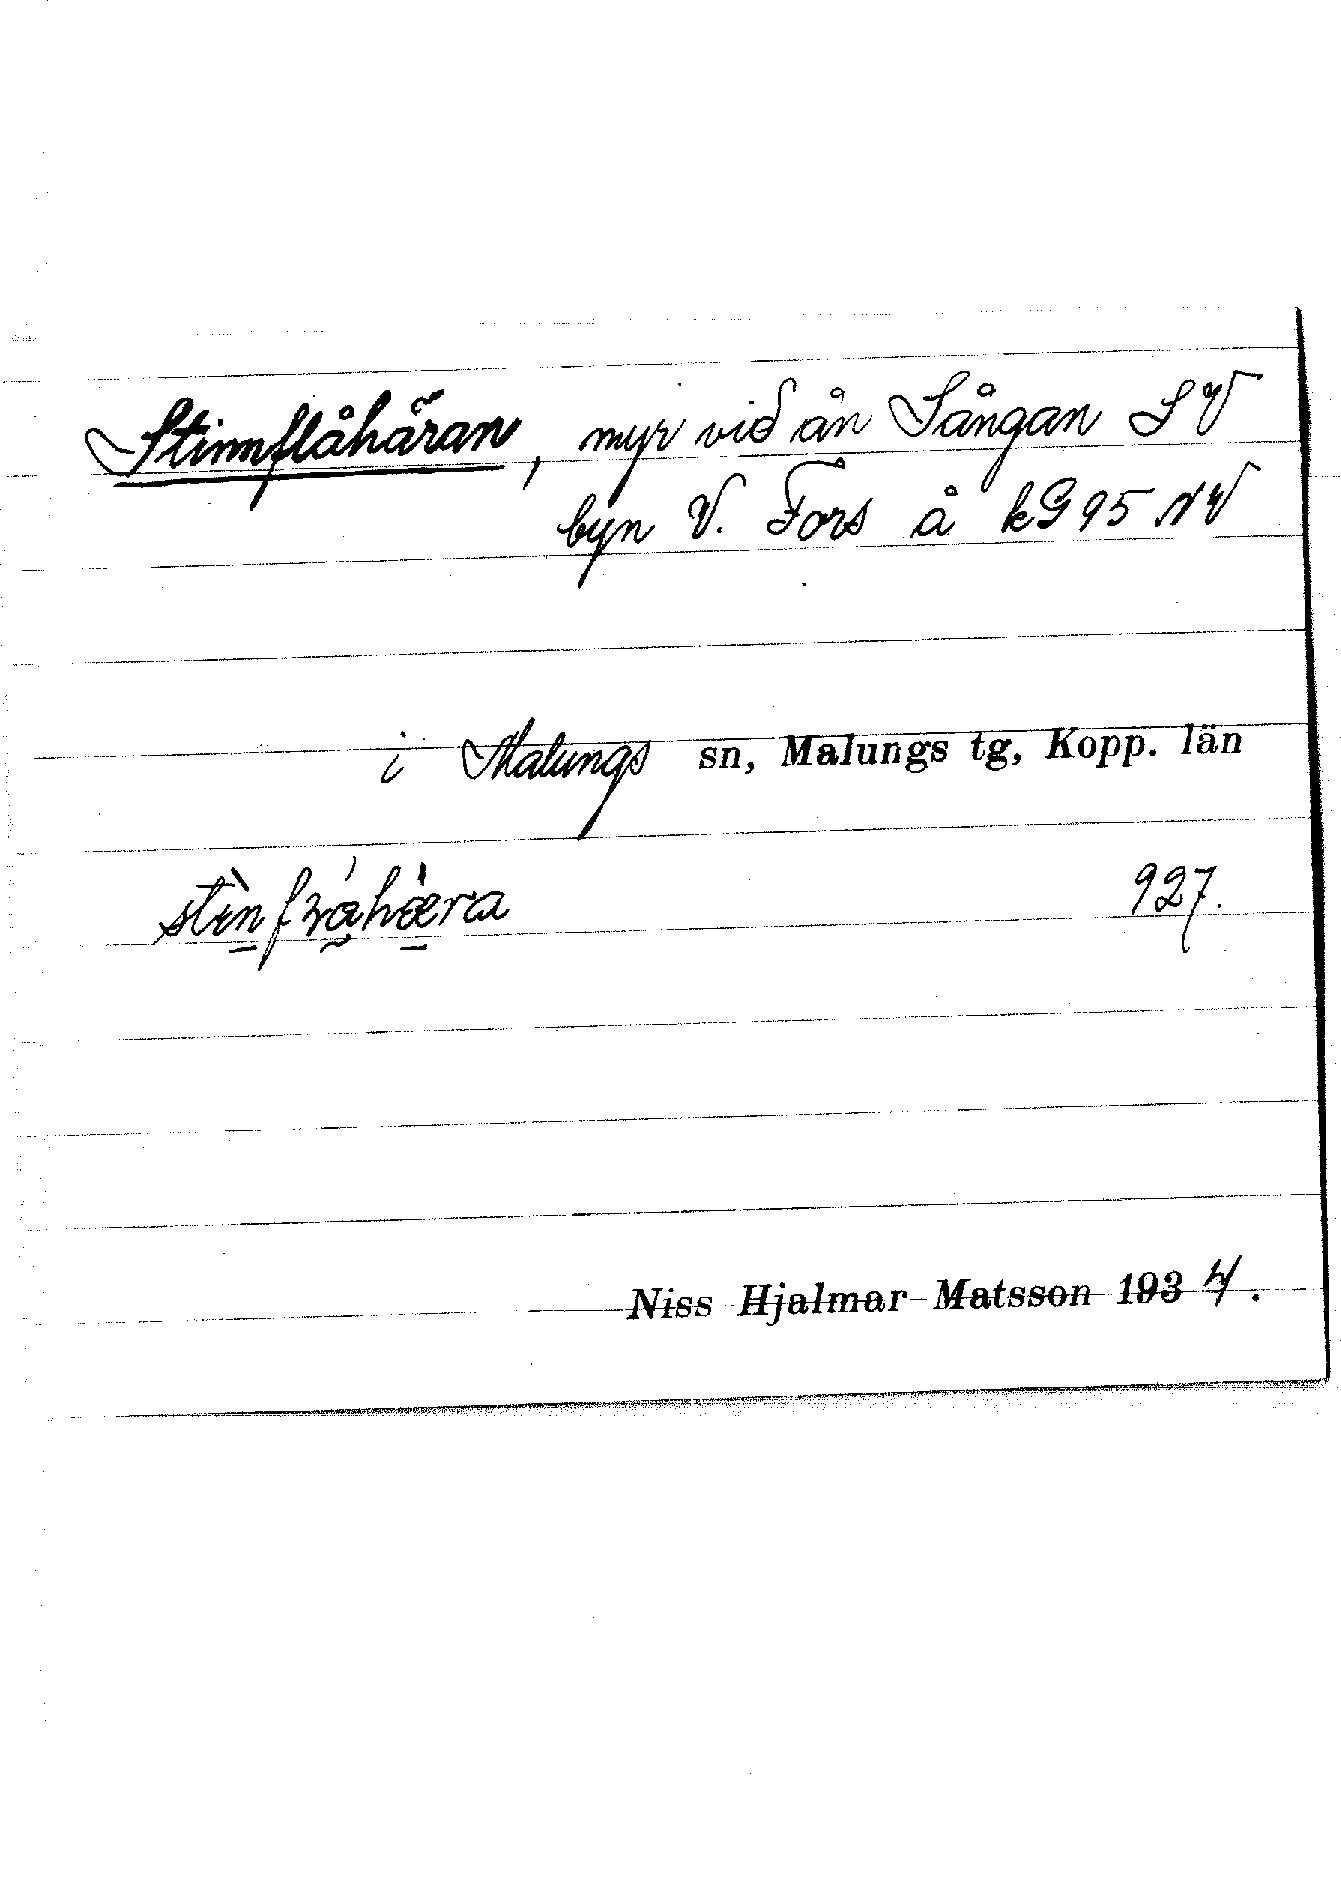 Stinnflåhäran, myr vid ån Sångan S V
byn V. Fors å kG 95 NV
i Malungs sn, Malungs tg, Kopp. län
927.
Niss Hjalmar Matsson 1934.